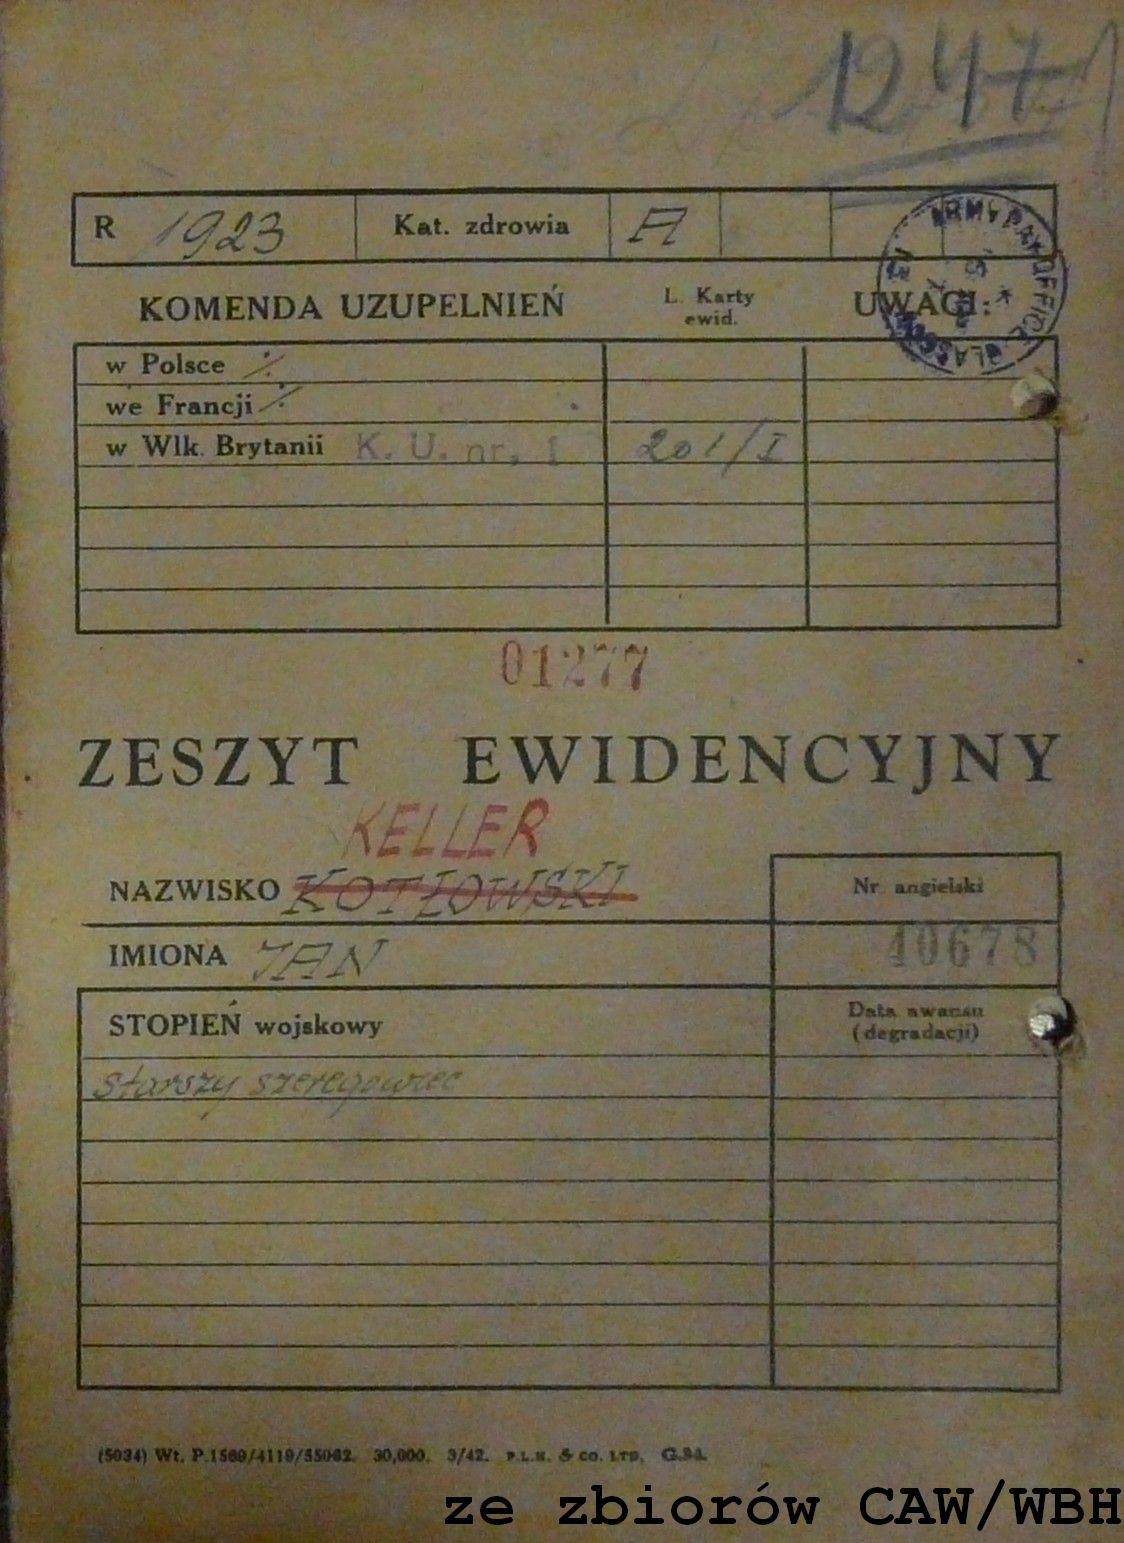 1247
R 1923 Kat. zdrowia A
KOMENDA UZUPEŁNIEŃ L. Karty ewid. UWAGI:
ARMY P. OFFICE GLASGOW
w Polsce ·/.
we Francji ·/.
w Wlk. Brytanii K. U. nr. 1 201/I
01277
ZESZYT EWIDENCYJNY
KELLER
NAZWISKO KOTŁOWSKI Nr. angielski
IMIONA JAN 40678
STOPIEŃ wojskowy Data awansu (degradacji)
starszy szeregowiec
(5034) Wt. P.1569/4119/55062. 30,000. 3/42. P.L.N. & CO. LTD. G.54.
ze zbiorów CAW/WBH